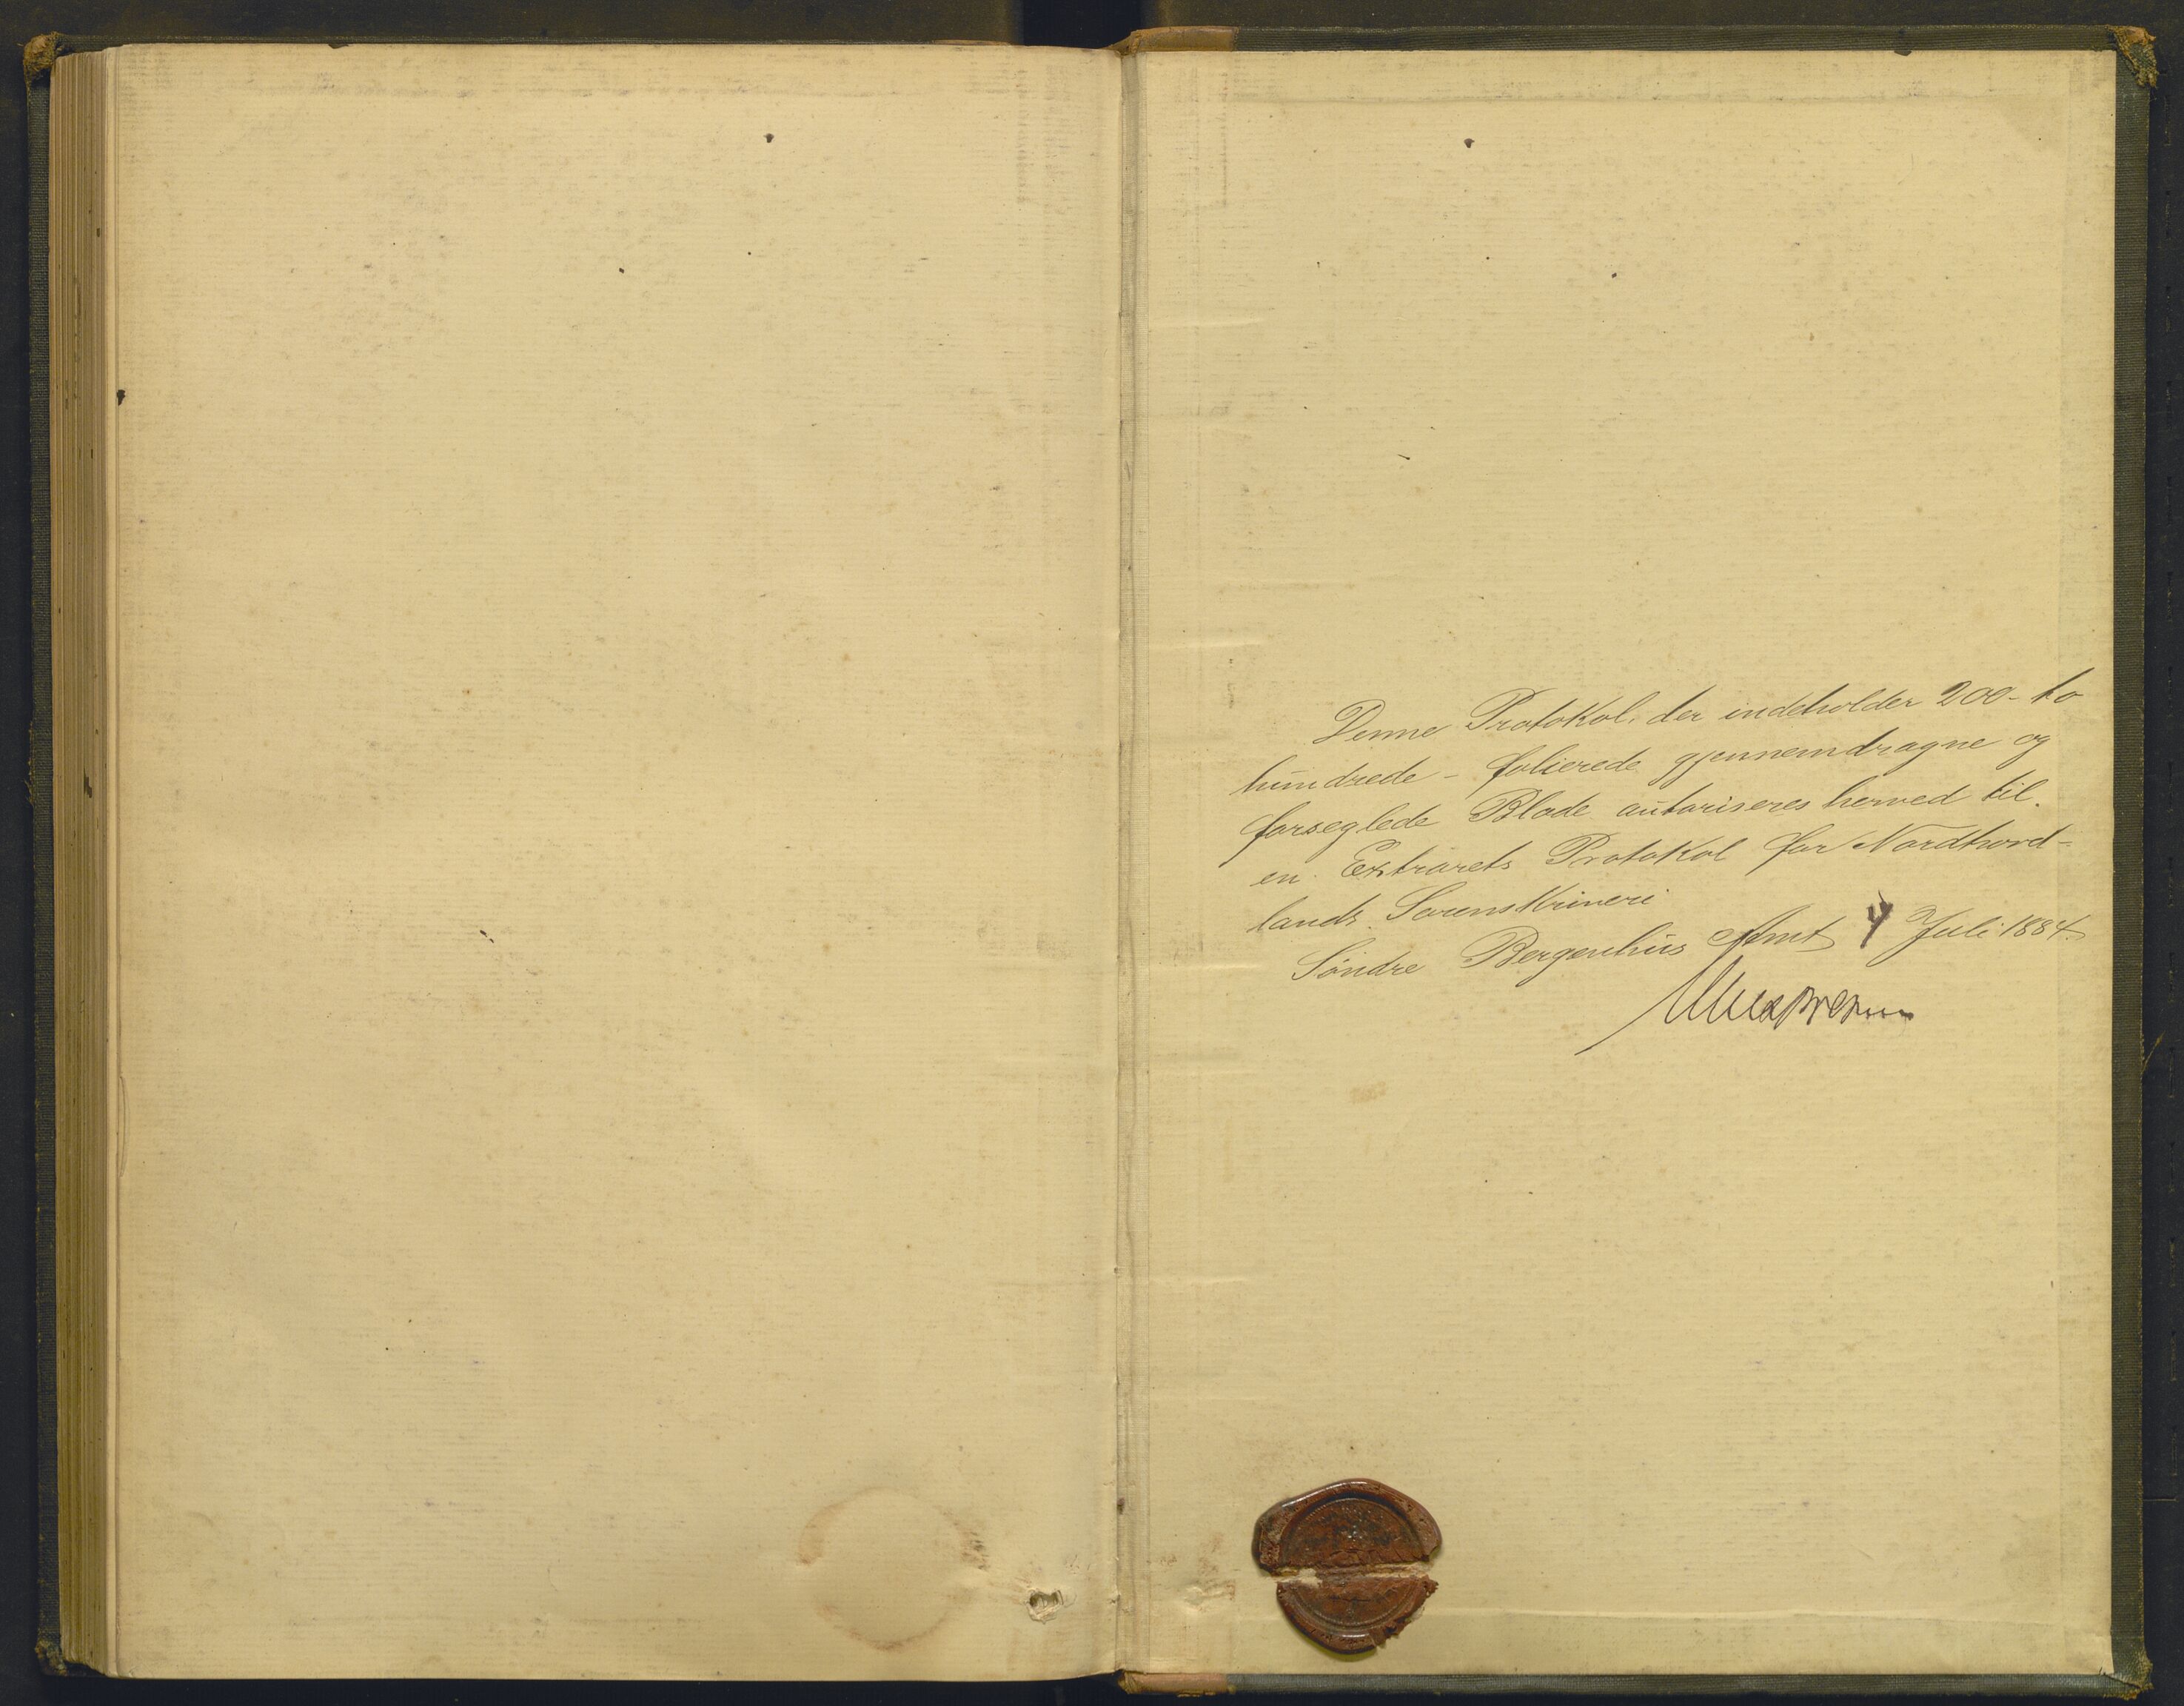 Denne Protokol, der indeholder 200 - to
hundrede - folierede gjennemdragne og
forseglede Blade autoriseres herved til
en Extrarets Protokol for Nordhord-
lands Sorenskriveri
Söndre Bergenhus Amt 4 Juli 1884.